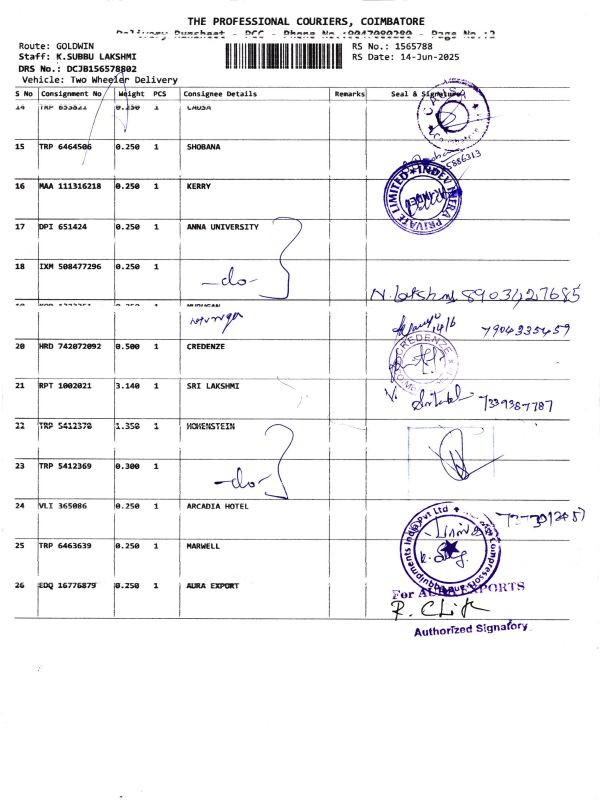 THE PROFESSIONAL COURIERS, COIMBATORE
Delivery Runsheet - PCC - Phone No.:9047080280 - Page No.:2
Route: GOLDWIN
RS No.: 1565788
Staff: K.SUBBU LAKSHMI
RS Date: 14-Jun-2025
DRS No.: DCJB156578802
Vehicle: Two Wheeler Delivery
S No Consignment No Weight PCS Consignee Details Remarks Seal & Signature
14 TRP 0.250 1
15 TRP 6464506 0.250 1 SHOBANA
16 MAA 111316218 0.250 1 KERRY
PRIVATE LIMITED * INDEV
17 DPI 651424 0.250 1 ANNA UNIVERSITY
18 IXM 508477296 0.250 1
-do-
N. Lakshmi 8903427685
19 MURUGAN
14/6 7904335459
20 HRD 742072092 0.500 1 CREDENZE
CREDENZE
21 RPT 1002021 3.140 1 SRI LAKSHMI
V. 7339387787
22 TRP 5412370 1.350 1 HOHENSTEIN
23 TRP 5412369 0.300 1
-do-
24 VLI 365086 0.250 1 ARCADIA HOTEL
25 TRP 6463639 0.250 1 MARWELL
Compressors
Pvt Ltd
26 EDQ 16776879 0.250 1 AURA EXPORT
For AURA EXPORTS
Authorized Signatory